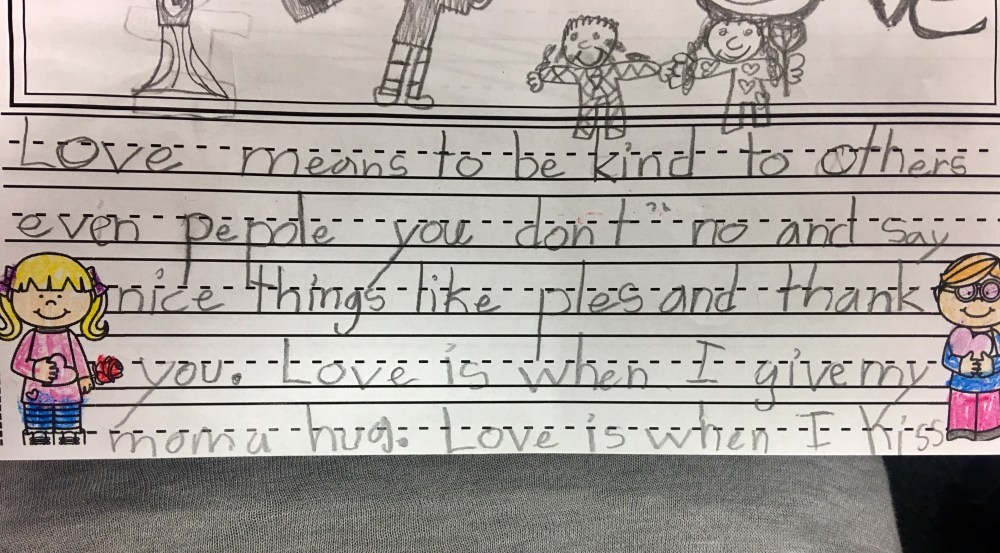 Love means to be kind to others
even pepole you don't no and say
nice things like ples and thank
you. Love is when I give my
mom a hug. Love is when I kiss